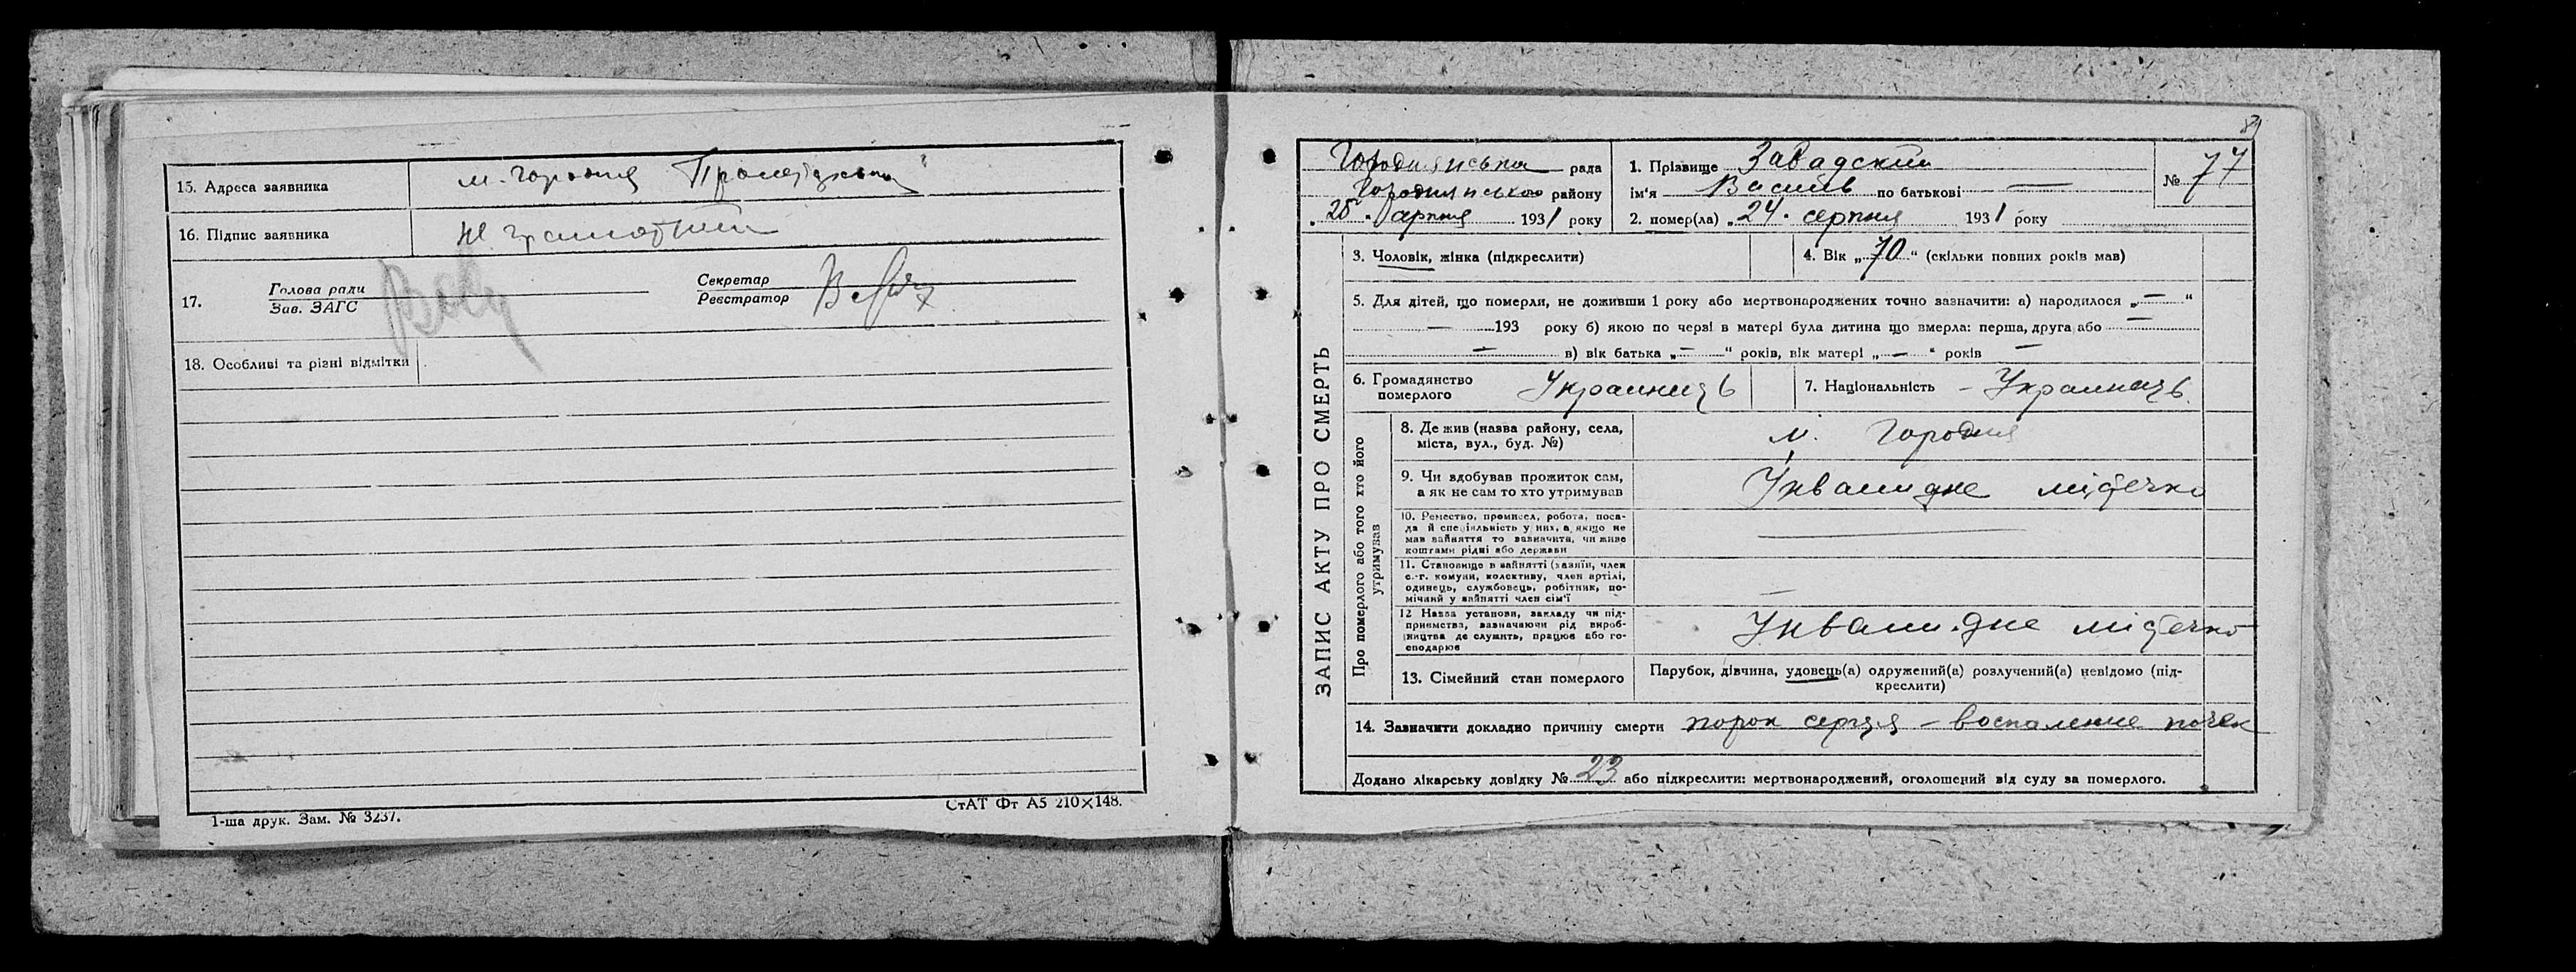 15. Адреса заявника м. Городня Пролетарська
16. Підпис заявника не грамотний
17. Голова ради
Зав. ЗАГС
Секретар
Реєстратор
18. Особливі та різні відмітки
1-ша друк. Зам. № 3237.
СтАТ Фт А5 210×148.
89
Городнянська рада
Городнянського району
„25" серпня 1931 року
1. Прізвище Завадский
ім'я Василь по батькові —
2. помер(ла) „24" серпня 1931 року
№ 77
ЗАПИС АКТУ ПРО СМЕРТЬ
3. Чоловік, жінка (підкреслити)
4. Вік „70" (скільки повних років мав)
5. Для дітей, що померли, не доживши 1 року або мертвонароджених точно зазначити: а) народилося „—"
— 193 року б) якою по черзі в матері була дитина що вмерла: перша, друга або —
— в) вік батька „—" років, вік матері „—" років —
6. Громадянство
померлого Украинець
7. Національність – Украинець
Про померлого або того хто його
утримував
8. Де жив (назва району, села,
міста, вул., буд. №) м. Городня
9. Чи здобував прожиток сам,
а як не сам то хто утримував Інвалидне містечко
10. Ремество, промисел, робота, поса-
да й спеціяльність у них, а якщо не
мав зайняття то зазначити, чи живе
коштами рідні або держави —
11. Становище в зайнятті (хазяїн, член
с.-г. комуни, колективу, член артілі,
одинець, службовець, робітник, по-
мічний у зайнятті член сім'ї —
12 Назва установи, закладу чи під-
приємства, зазначаючи рід вироб-
ництва де служить, працює або го-
сподарює Інвалидне містечко
13. Сімейний стан померлого Парубок, дівчина, удовець(а) одружений(а) розлучений(а) невідомо (під-
креслити)
14. Зазначити докладно причину смерти порок серця – воспаление почек
Додано лікарську довідку № 23 або підкреслити: мертвонароджений, оголошений від суду за померлого.